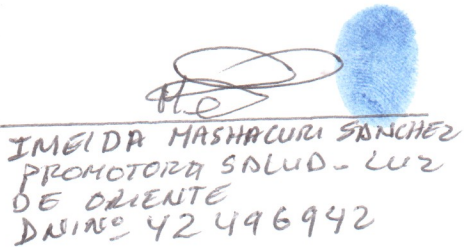 IMELDA MASHACURI SANCHEZ
PROMOTORA SALUD - LUZ
DE ORIENTE
DNI Nº 42496942